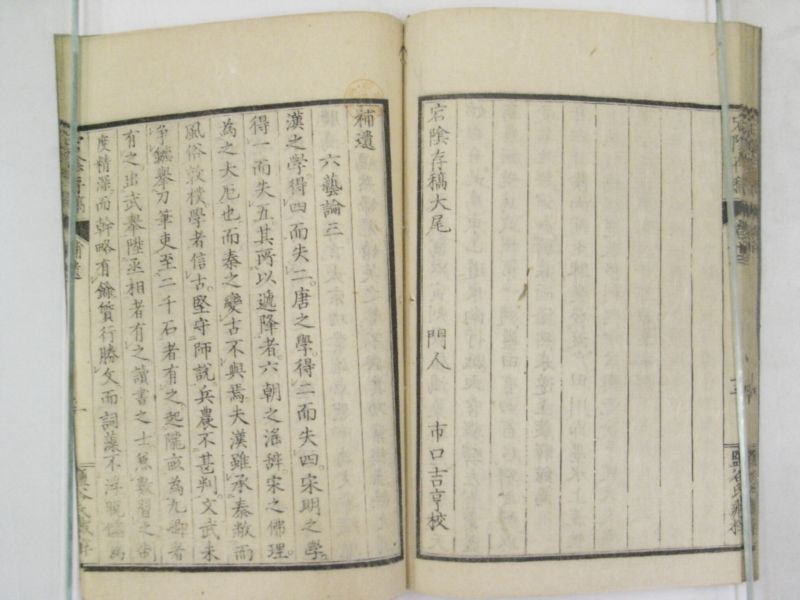 宕陰存稿大尾 門人 市口吉亨校
補遺
六藝論三
漢之學得四而失二唐之學得二而失四宋明之學
得一而失五其所以遞降者六朝之淫辭宋之佛理
為之大厄也而秦之變古不與焉夫漢雖承秦敝而
風俗敦樸學者信古堅守師説兵農不甚判文武未
爭鑣舉刀筆吏至二千石者有之起隴畝為九卿者
有之出武舉陞丞相者有之讀書之士無數習之
度精深而幹略有餘質行勝文而詞藻不浮
宕陰存稿
補遺